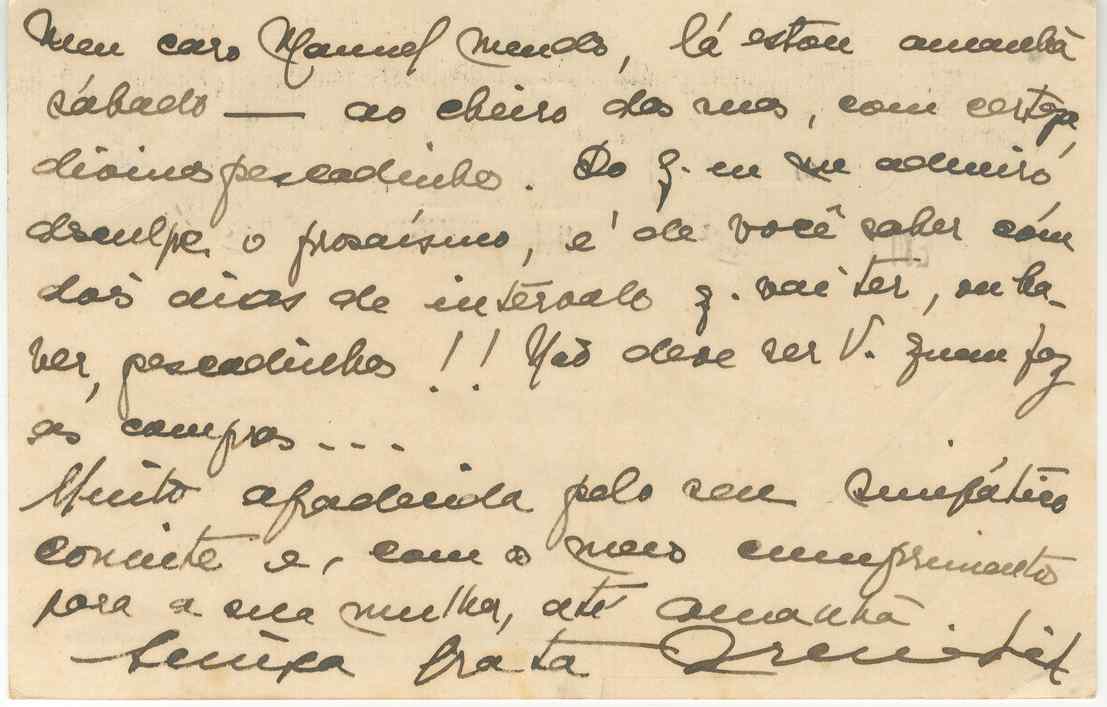 Meu caro Manuel Mendes, lá estou amanhã
sábado — ao cheiro das suas, com certeza,
divinas pescadinhas. Do q. eu me admiro
desculpe o prosaísmo, é de você saber com
dois dias de intervalo q. vai ter, ou ha-
ver, pescadinhas!! Não deve ser V. quem faz
as compras...
Muito agradecida pelo seu simpático
convite e, com os meus cumprimentos
para a sua mulher, até amanhã
Amiga grata